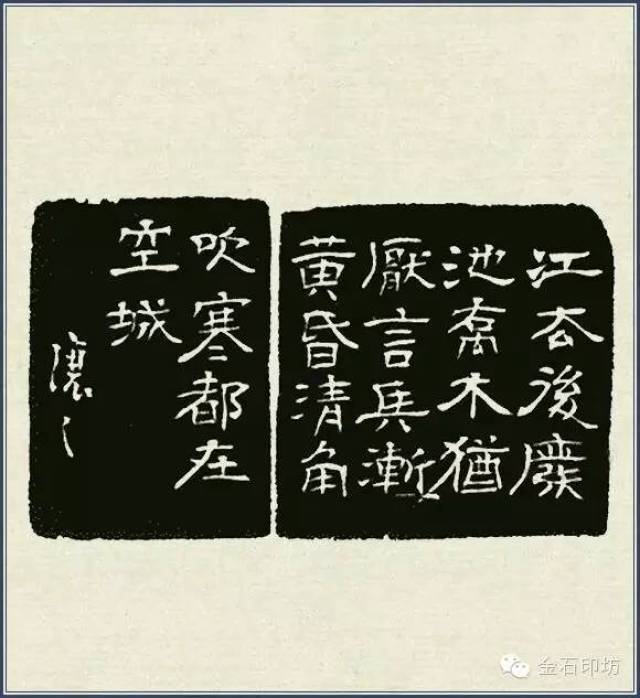 江去後廢
池喬木猶
厭言兵漸
黄昏清角
吹寒都在
空城
讓之
金石印坊